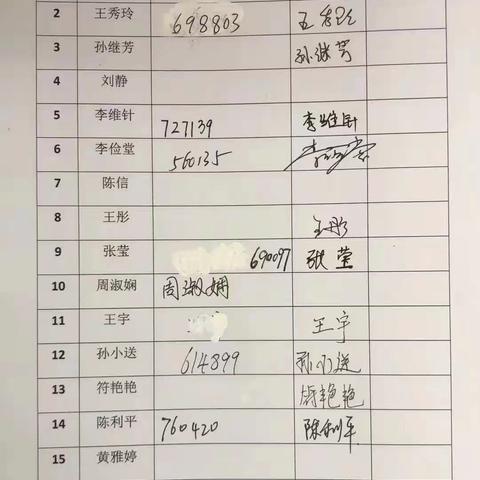 2 王秀玲 698803 王秀玲
3 孙继芳 孙继芳
4 刘静
5 李维针 727139 李维针
6 李俭堂 560135
7 陈信
8 王彤 王彤
9 张莹 690097 张莹
10 周淑娴 周淑娴
11 王宇 王宇
12 孙小送 614899 孙小送
13 符艳艳 符艳艳
14 陈利平 760420 陈利平
15 黄雅婷